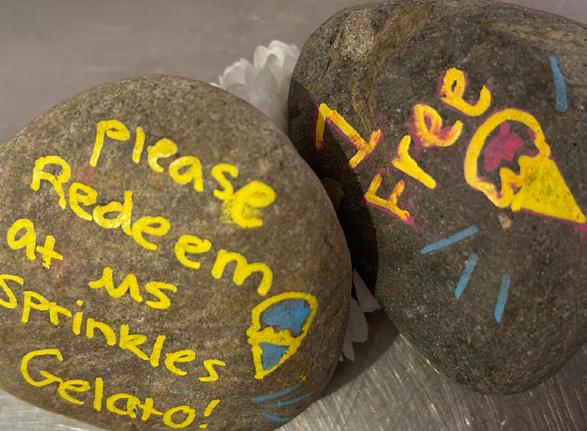 Please
Redeem
at Ms
Sprinkles
Gelato!
1
Free